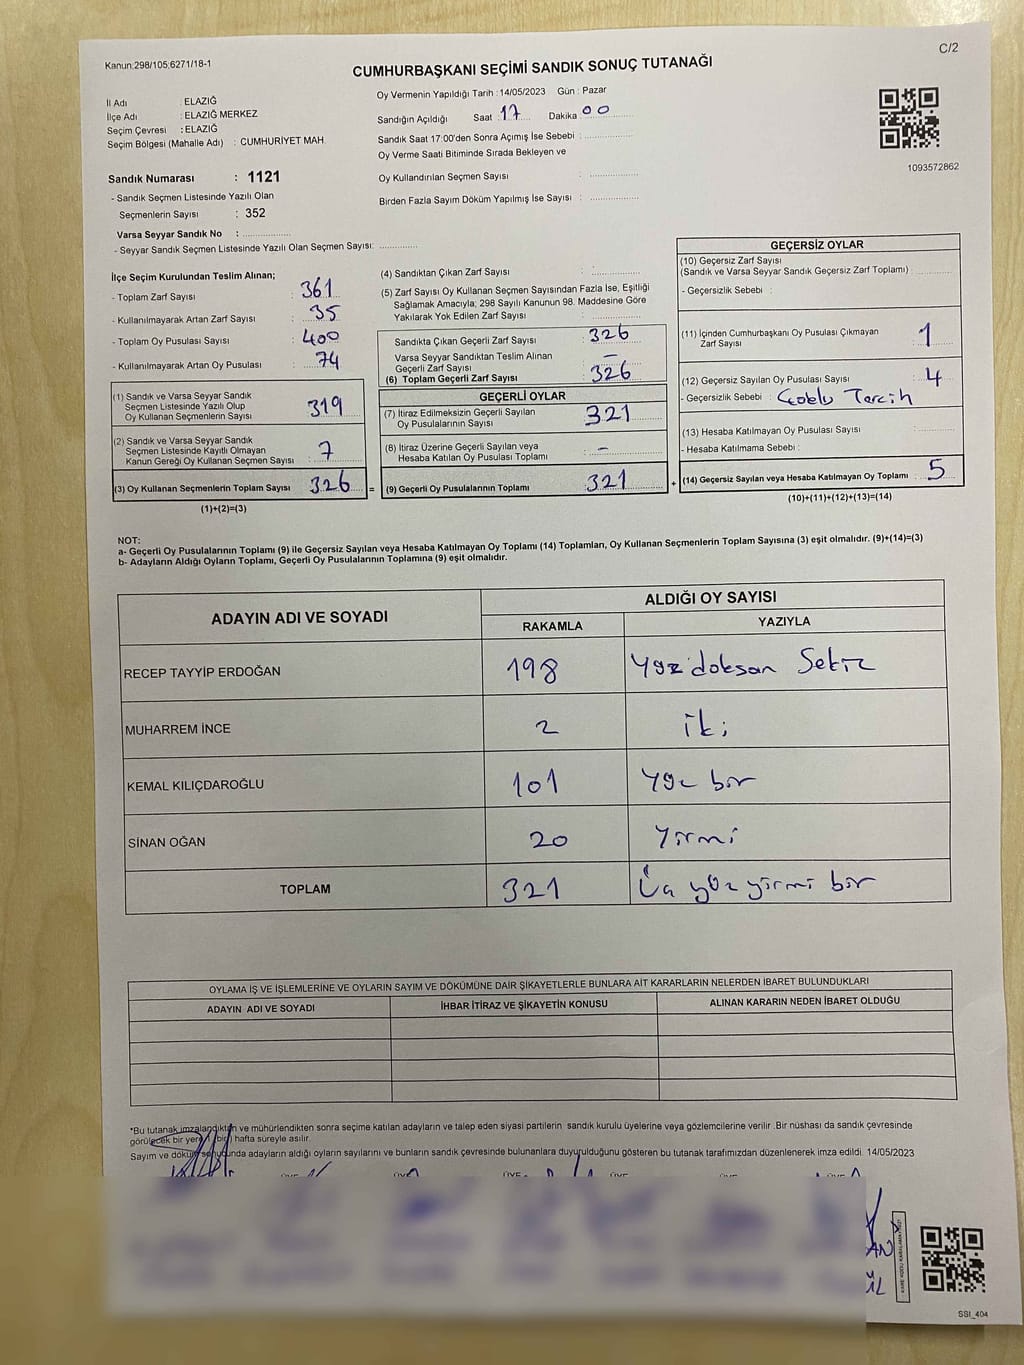 Kanun:298/105;6271/18-1
C/2
CUMHURBAŞKANI SEÇİMİ SANDIK SONUÇ TUTANAĞI
İl Adı : ELAZIĞ
İlçe Adı : ELAZIĞ MERKEZ
Seçim Çevresi : ELAZIĞ
Seçim Bölgesi (Mahalle Adı) : CUMHURİYET MAH.
Sandık Numarası : 1121
- Sandık Seçmen Listesinde Yazılı Olan
Seçmenlerin Sayısı : 352
Varsa Seyyar Sandık No :
- Seyyar Sandık Seçmen Listesinde Yazılı Olan Seçmen Sayısı:
Oy Vermenin Yapıldığı Tarih :14/05/2023 Gün : Pazar
Sandığın Açıldığı Saat : 17 Dakika 00
Sandık Saat 17:00'den Sonra Açımış İse Sebebi :
Oy Verme Saati Bitiminde Sırada Bekleyen ve
Oy Kullandırılan Seçmen Sayısı :
Birden Fazla Sayım Döküm Yapılmış İse Sayısı :
1093572862
İlçe Seçim Kurulundan Teslim Alınan;
- Toplam Zarf Sayısı : 361
- Kullanılmayarak Artan Zarf Sayısı : 35
- Toplam Oy Pusulası Sayısı : 400
- Kullanılmayarak Artan Oy Pusulası : 74
(1) Sandık ve Varsa Seyyar Sandık
Seçmen Listesinde Yazılı Olup
Oy Kullanan Seçmenlerin Sayısı : 319
(2) Sandık ve Varsa Seyyar Sandık
Seçmen Listesinde Kayıtlı Olmayan
Kanun Gereği Oy Kullanan Seçmen Sayısı : 7
(3) Oy Kullanan Seçmenlerin Toplam Sayısı : 326
(1)+(2)=(3)
=
(4) Sandıktan Çıkan Zarf Sayısı :
(5) Zarf Sayısı Oy Kullanan Seçmen Sayısından Fazla İse, Eşitliği
Sağlamak Amacıyla; 298 Sayılı Kanunun 98. Maddesine Göre
Yakılarak Yok Edilen Zarf Sayısı :
Sandıkta Çıkan Geçerli Zarf Sayısı : 326
Varsa Seyyar Sandıktan Teslim Alınan
Geçerli Zarf Sayısı : –
(6) Toplam Geçerli Zarf Sayısı : 326
GEÇERLİ OYLAR
(7) İtiraz Edilmeksizin Geçerli Sayılan
Oy Pusulalarının Sayısı : 321
(8) İtiraz Üzerine Geçerli Sayılan veya
Hesaba Katılan Oy Pusulası Toplamı : –
(9) Geçerli Oy Pusulalarının Toplamı : 321
+
GEÇERSİZ OYLAR
(10) Geçersiz Zarf Sayısı
(Sandık ve Varsa Seyyar Sandık Geçersiz Zarf Toplamı) :
- Geçersizlik Sebebi :
(11) İçinden Cumhurbaşkanı Oy Pusulası Çıkmayan
Zarf Sayısı : 1
(12) Geçersiz Sayılan Oy Pusulası Sayısı : 4
- Geçersizlik Sebebi : Çoklu Tercih
(13) Hesaba Katılmayan Oy Pusulası Sayısı :
- Hesaba Katılmama Sebebi :
(14) Geçersiz Sayılan veya Hesaba Katılmayan Oy Toplamı : 5
(10)+(11)+(12)+(13)=(14)
NOT:
a- Geçerli Oy Pusulalarının Toplamı (9) ile Geçersiz Sayılan veya Hesaba Katılmayan Oy Toplamı (14) Toplamları, Oy Kullanan Seçmenlerin Toplam Sayısına (3) eşit olmalıdır. (9)+(14)=(3)
b- Adayların Aldığı Oyların Toplamı, Geçerli Oy Pusulalarının Toplamına (9) eşit olmalıdır.
ADAYIN ADI VE SOYADI
ALDIĞI OY SAYISI
RAKAMLA YAZIYLA
RECEP TAYYİP ERDOĞAN 198 Yüz doksan Sekiz
MUHARREM İNCE 2 iki
KEMAL KILIÇDAROĞLU 101 Yüz bir
SİNAN OĞAN 20 Yirmi
TOPLAM 321 Üç yüz yirmi bir
OYLAMA İŞ VE İŞLEMLERİNE VE OYLARIN SAYIM VE DÖKÜMÜNE DAİR ŞİKAYETLERLE BUNLARA AİT KARARLARIN NELERDEN İBARET BULUNDUKLARI
ADAYIN ADI VE SOYADI İHBAR İTİRAZ VE ŞİKAYETİN KONUSU ALINAN KARARIN NEDEN İBARET OLDUĞU
*Bu tutanak imzalandıktan ve mühürlendikten sonra seçime katılan adayların ve talep eden siyasi partilerin sandık kurulu üyelerine veya gözlemcilerine verilir .Bir nüshası da sandık çevresinde
görülecek bir yere (bir) hafta süreyle asılır.
Sayım ve döküm sonucunda adayların aldığı oyların sayılarını ve bunların sandık çevresinde bulunanlara duyurulduğunu gösteren bu tutanak tarafımızdan düzenlenerek imza edildi. 14/05/2023
SSI_404